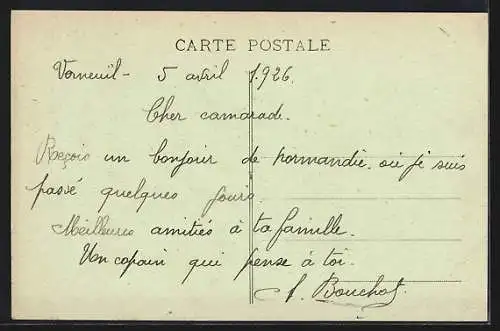 CARTE POSTALE
Verneuil - 5 avril 1926.
Cher camarade.
Reçois un bonjour de normandie. où je suis
passé quelques jours.
Meilleures amitiés à ta famille.
Un copain qui pense à toi.
Bouchot.